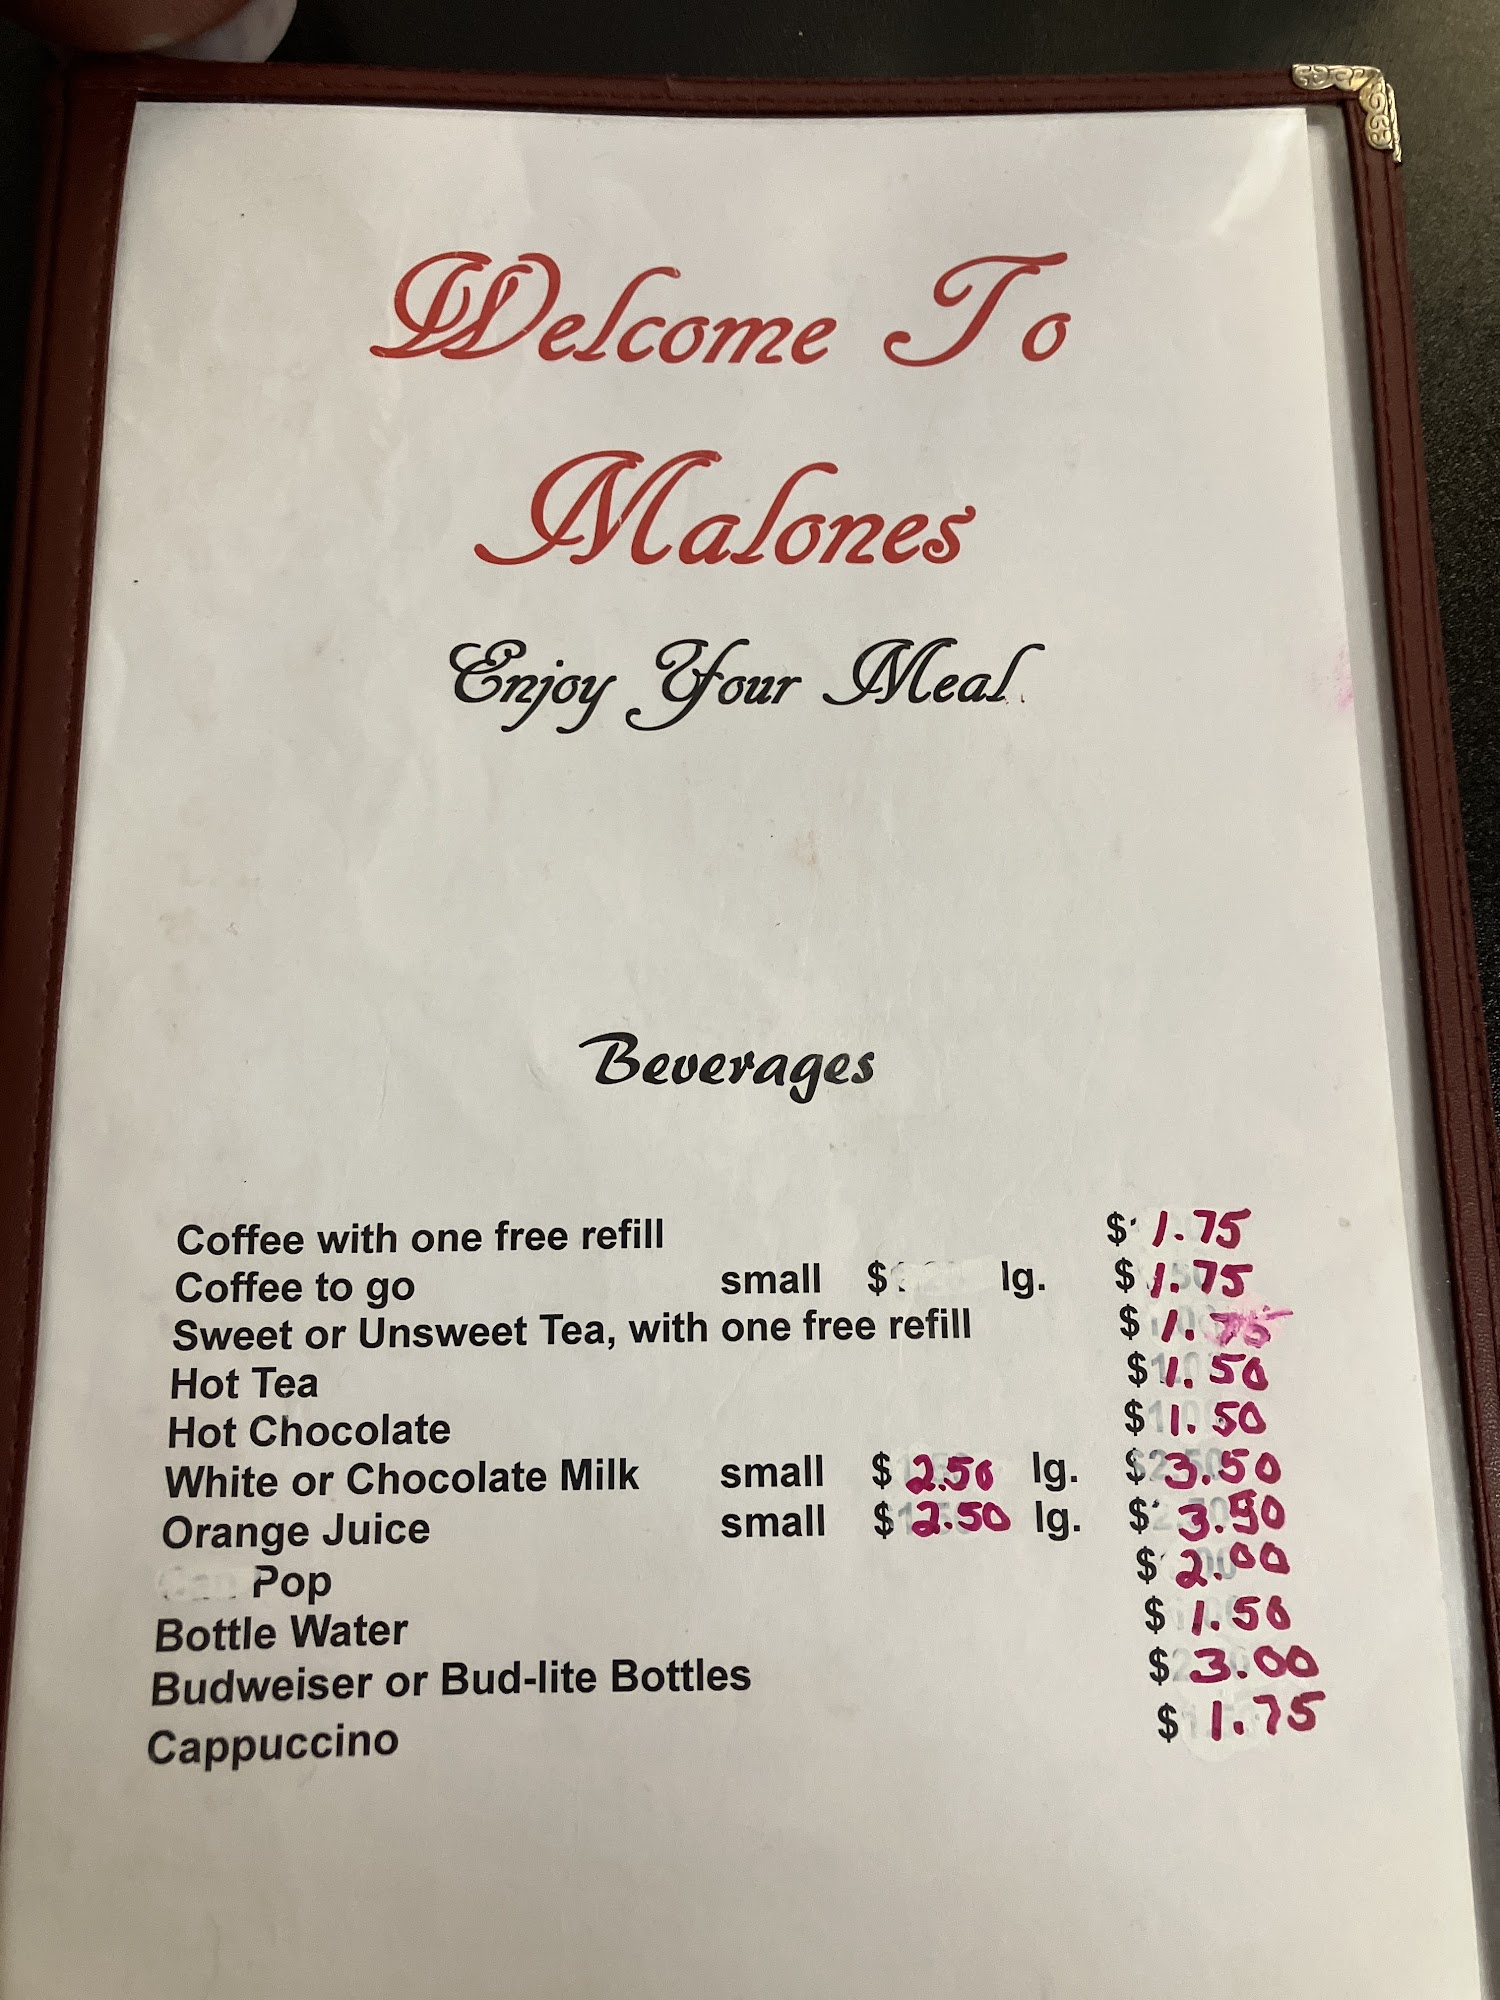 Welcome To
Malones
Enjoy Your Meal
Beverages
Coffee with one free refill $ 1.75
Coffee to go small $ lg. $ 1.75
Sweet or Unsweet Tea, with one free refill $ 1.75
Hot Tea $ 1.50
Hot Chocolate $ 1.50
White or Chocolate Milk small $ 2.50 lg. $ 3.50
Orange Juice small $ 2.50 lg. $ 3.50
Pop $ 2.00
Bottle Water $ 1.50
Budweiser or Bud-lite Bottles $ 3.00
Cappuccino $ 1.75